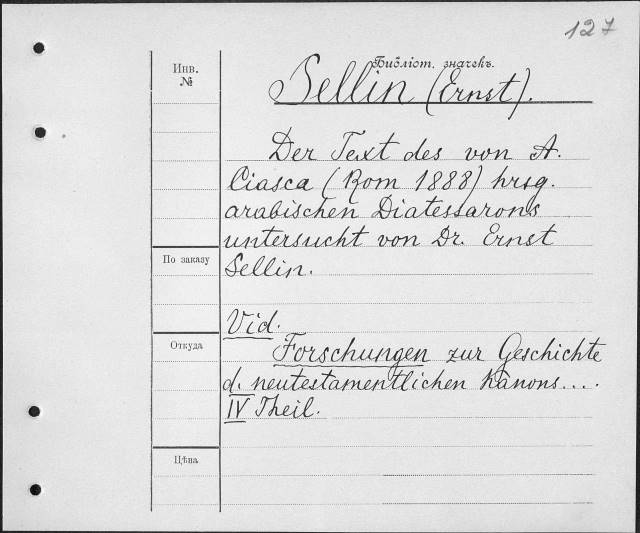 127
Инв.
№
Библіот. значекъ.
Sellin (Ernst).
Der Text des von A.
Ciasca (Rom 1888) hrsg.
arabischen Diatessarons
untersucht von Dr. Ernst
Sellin.
По заказу
Vid.
Откуда
Forschungen zur Geschichte
d. neutestamentlichen Kanons....
IV Theil.
Цѣна